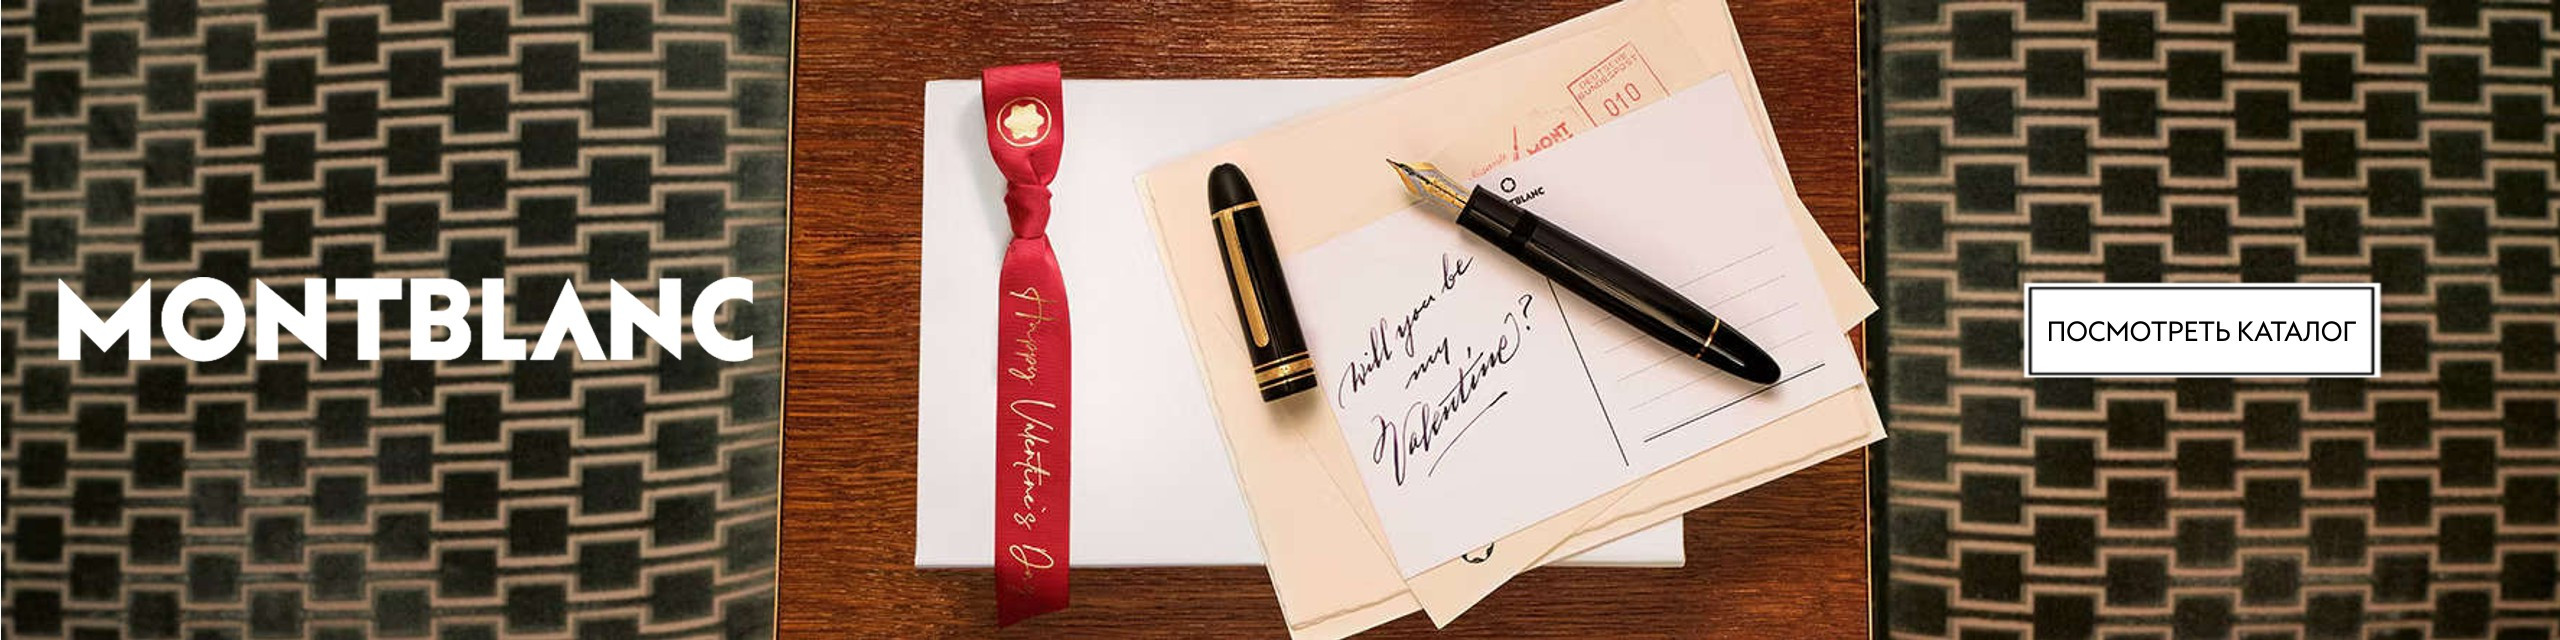 MONTBLANC
Happy Valentine's Day
DEUTSCHE
BUNDESPOST
010
MONT
will you be
my
Valentine?
ПОСМОТРЕТЬ КАТАЛОГ